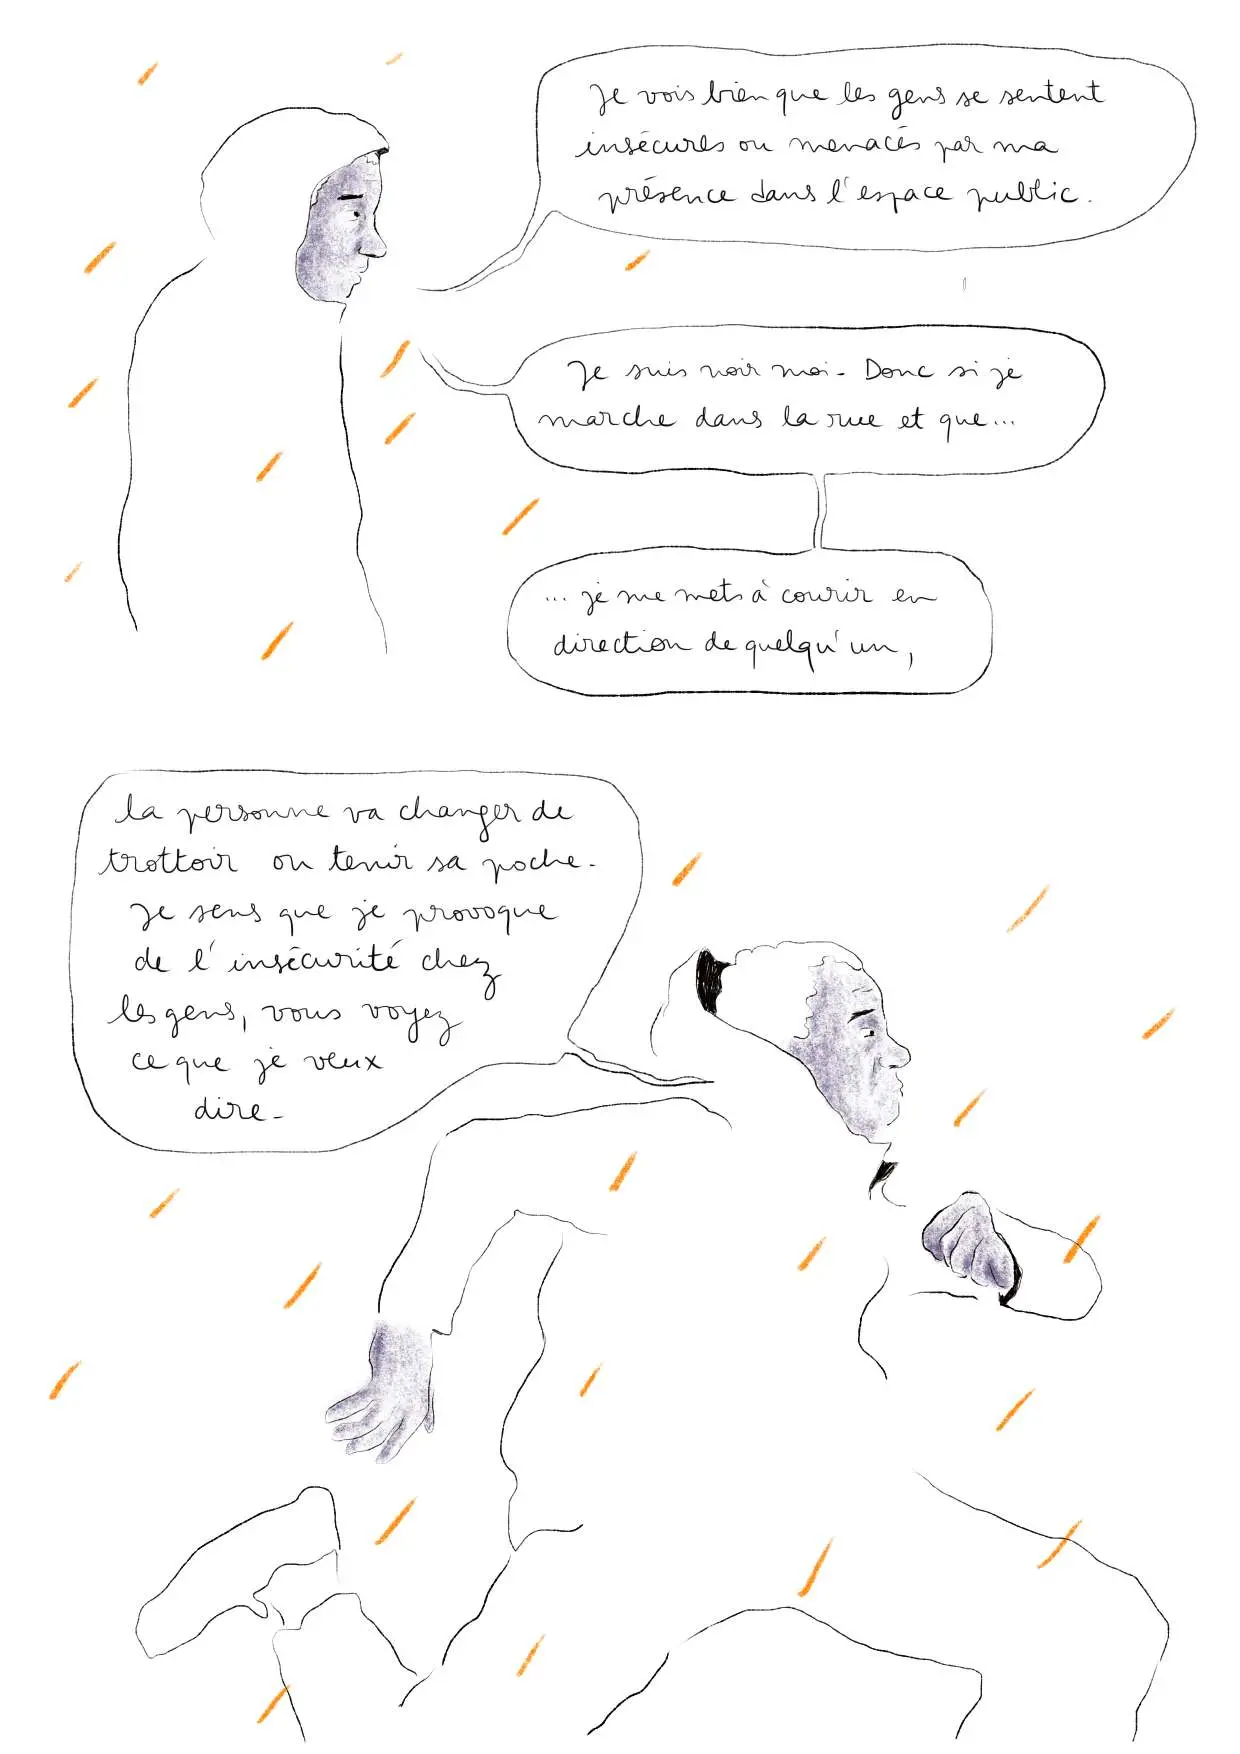 Je vois bien que les gens se sentent
insécures ou menacés par ma
présence dans l'espace public.
Je suis noir moi. Donc si je
marche dans la rue et que...
... je me mets à courir en
direction de quelqu'un,
la personne va changer de
trottoir ou tenir sa poche.
Je sens que je provoque
de l'insécurité chez
les gens, vous voyez
ce que je veux
dire.